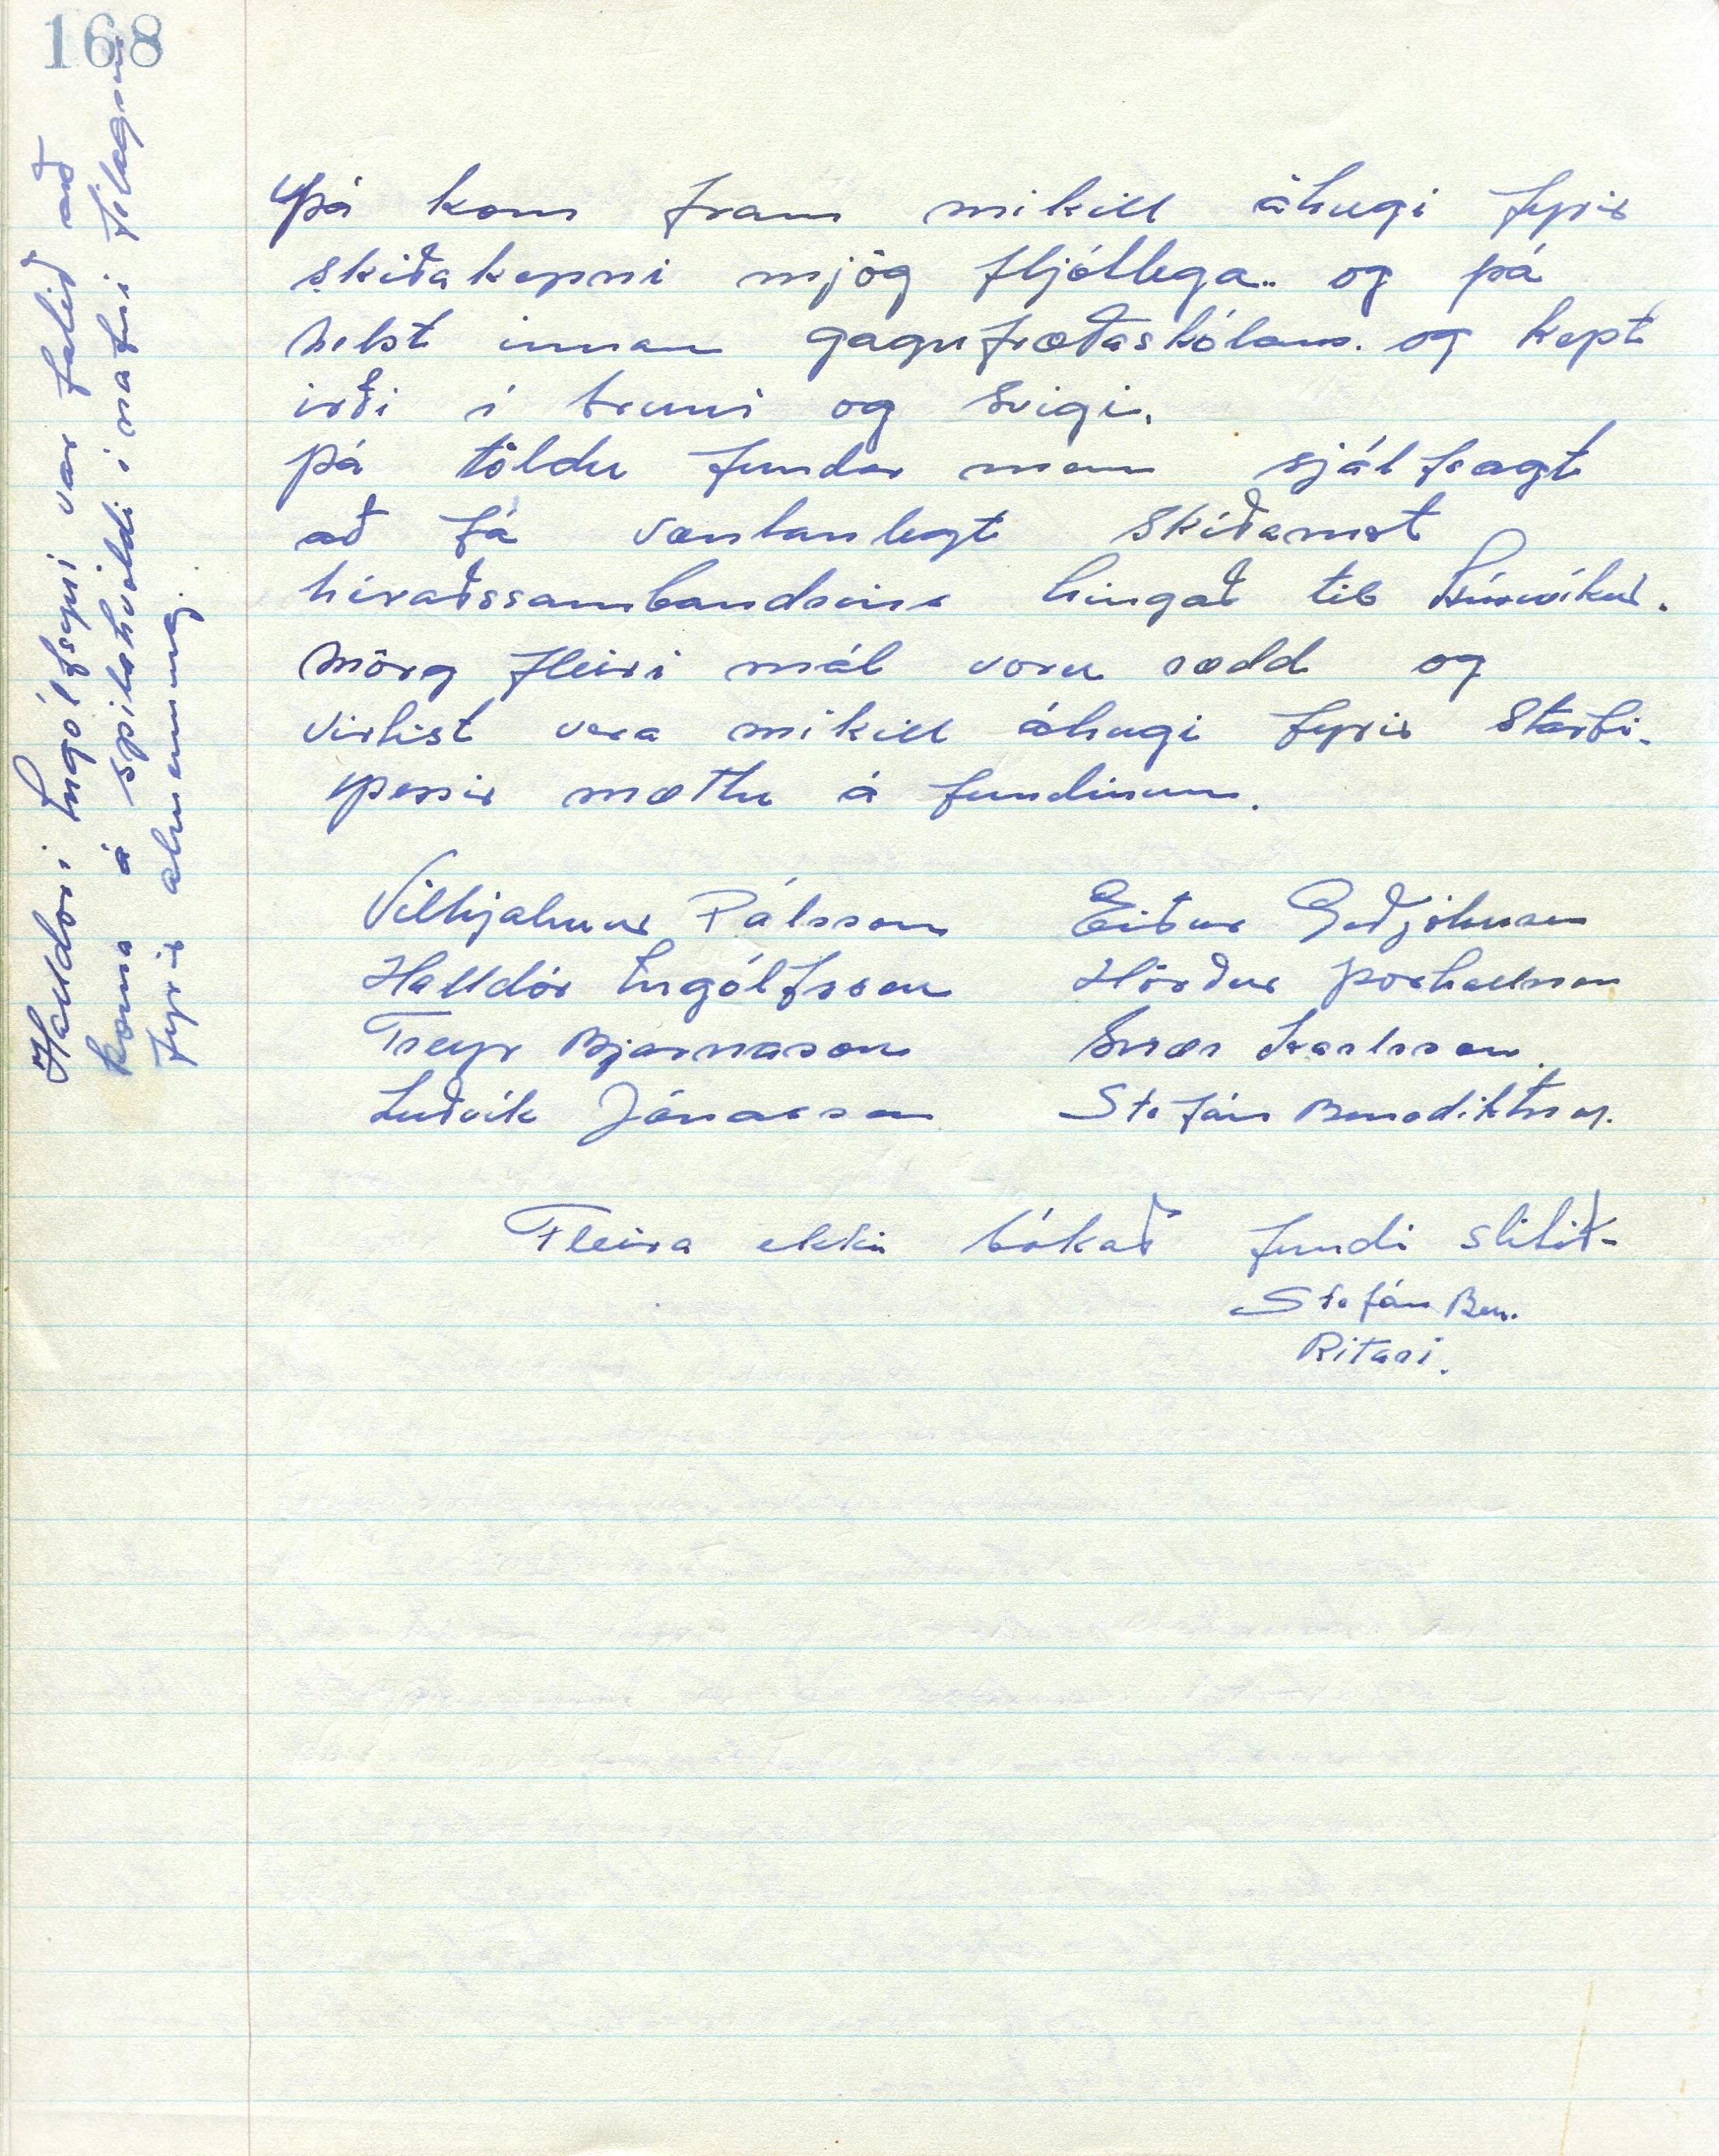 168
Þá kom fram mikill áhugi fyrir
skíðakepni mjög fljótlega.. og þá
helst innan gagnfræðaskólans. og kept
irði í bruni og svigi.
þá töldu fundar menn sjálfsagt
að fá væntanlegt skíðamót
héraðssambandsins hingað til Húsavíkur.
Mörg fleiri mál voru rædd og
virtist vera mikill áhugi fyrir starfi.
þessir mættu á fundinum.
Vilhjalmur Pálsson Eiður Guðjohnsen
Halldór Ingólfsson Hörður Þorhallsson
Freyr Bjarnason Svær Karlsson
Luðvík Jónasson Stefán Benediktsson.
Fleira ekki bókað fundi slitið-
Stefán Ben.
Ritari.
Halldori Ingólfsyni var falið að
koma á spilakvöldi í nafni félagsins
fyrir almenning.